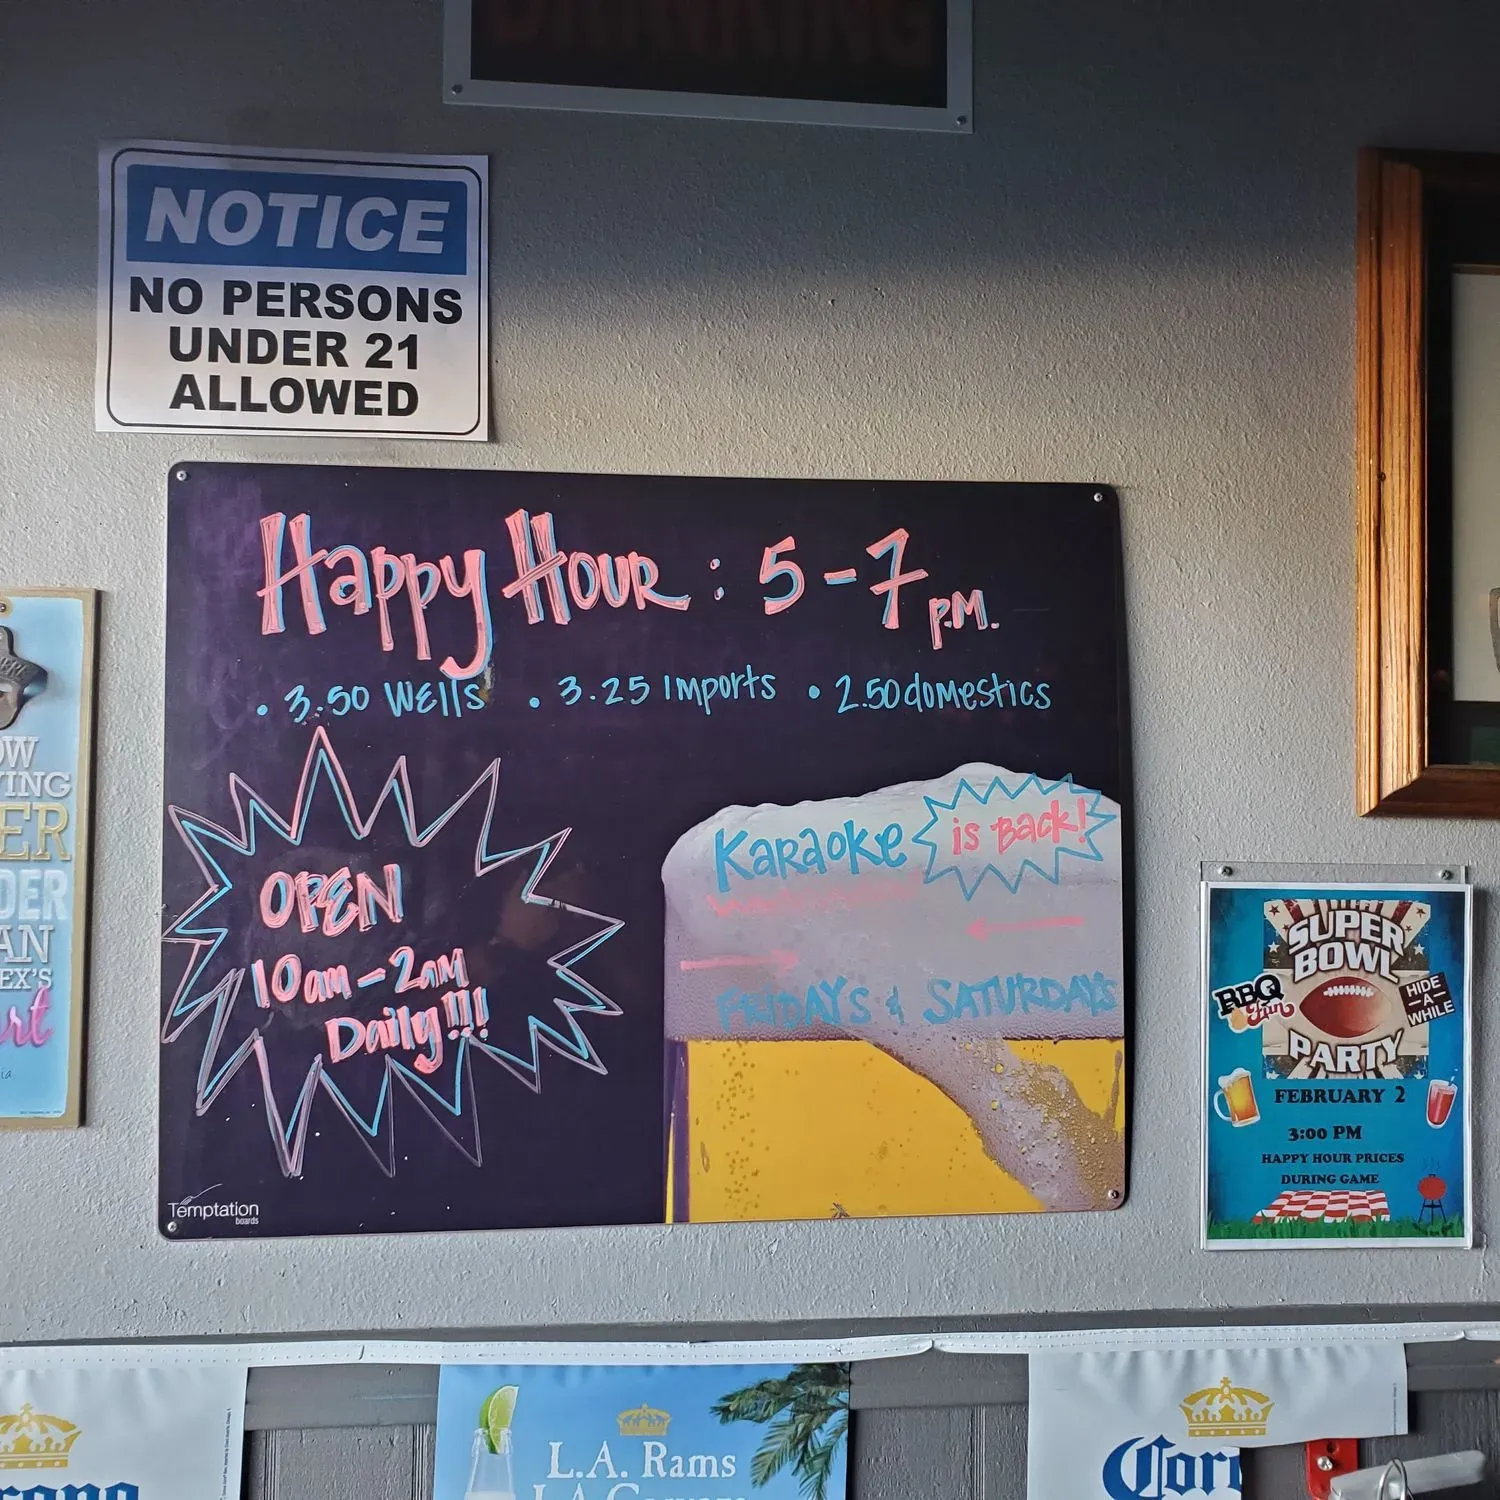 DRINKING
NOTICE
NO PERSONS
UNDER 21
ALLOWED
Happy Hour: 5-7 P.M.
• 3.50 Wells • 3.25 Imports • 2.50 domestics
OPEN
10am-2am
Daily!!!
Karaoke is Back!
FRIDAYS & SATURDAYS
Temptation
boards
OW
YING
ER
DER
AN
EX'S
rt
ia
SUPER
BOWL
BBQ
Fun
HIDE
-A-
WHILE
PARTY
FEBRUARY 2
3:00 PM
HAPPY HOUR PRICES
DURING GAME
rona
L.A. Rams
Coro